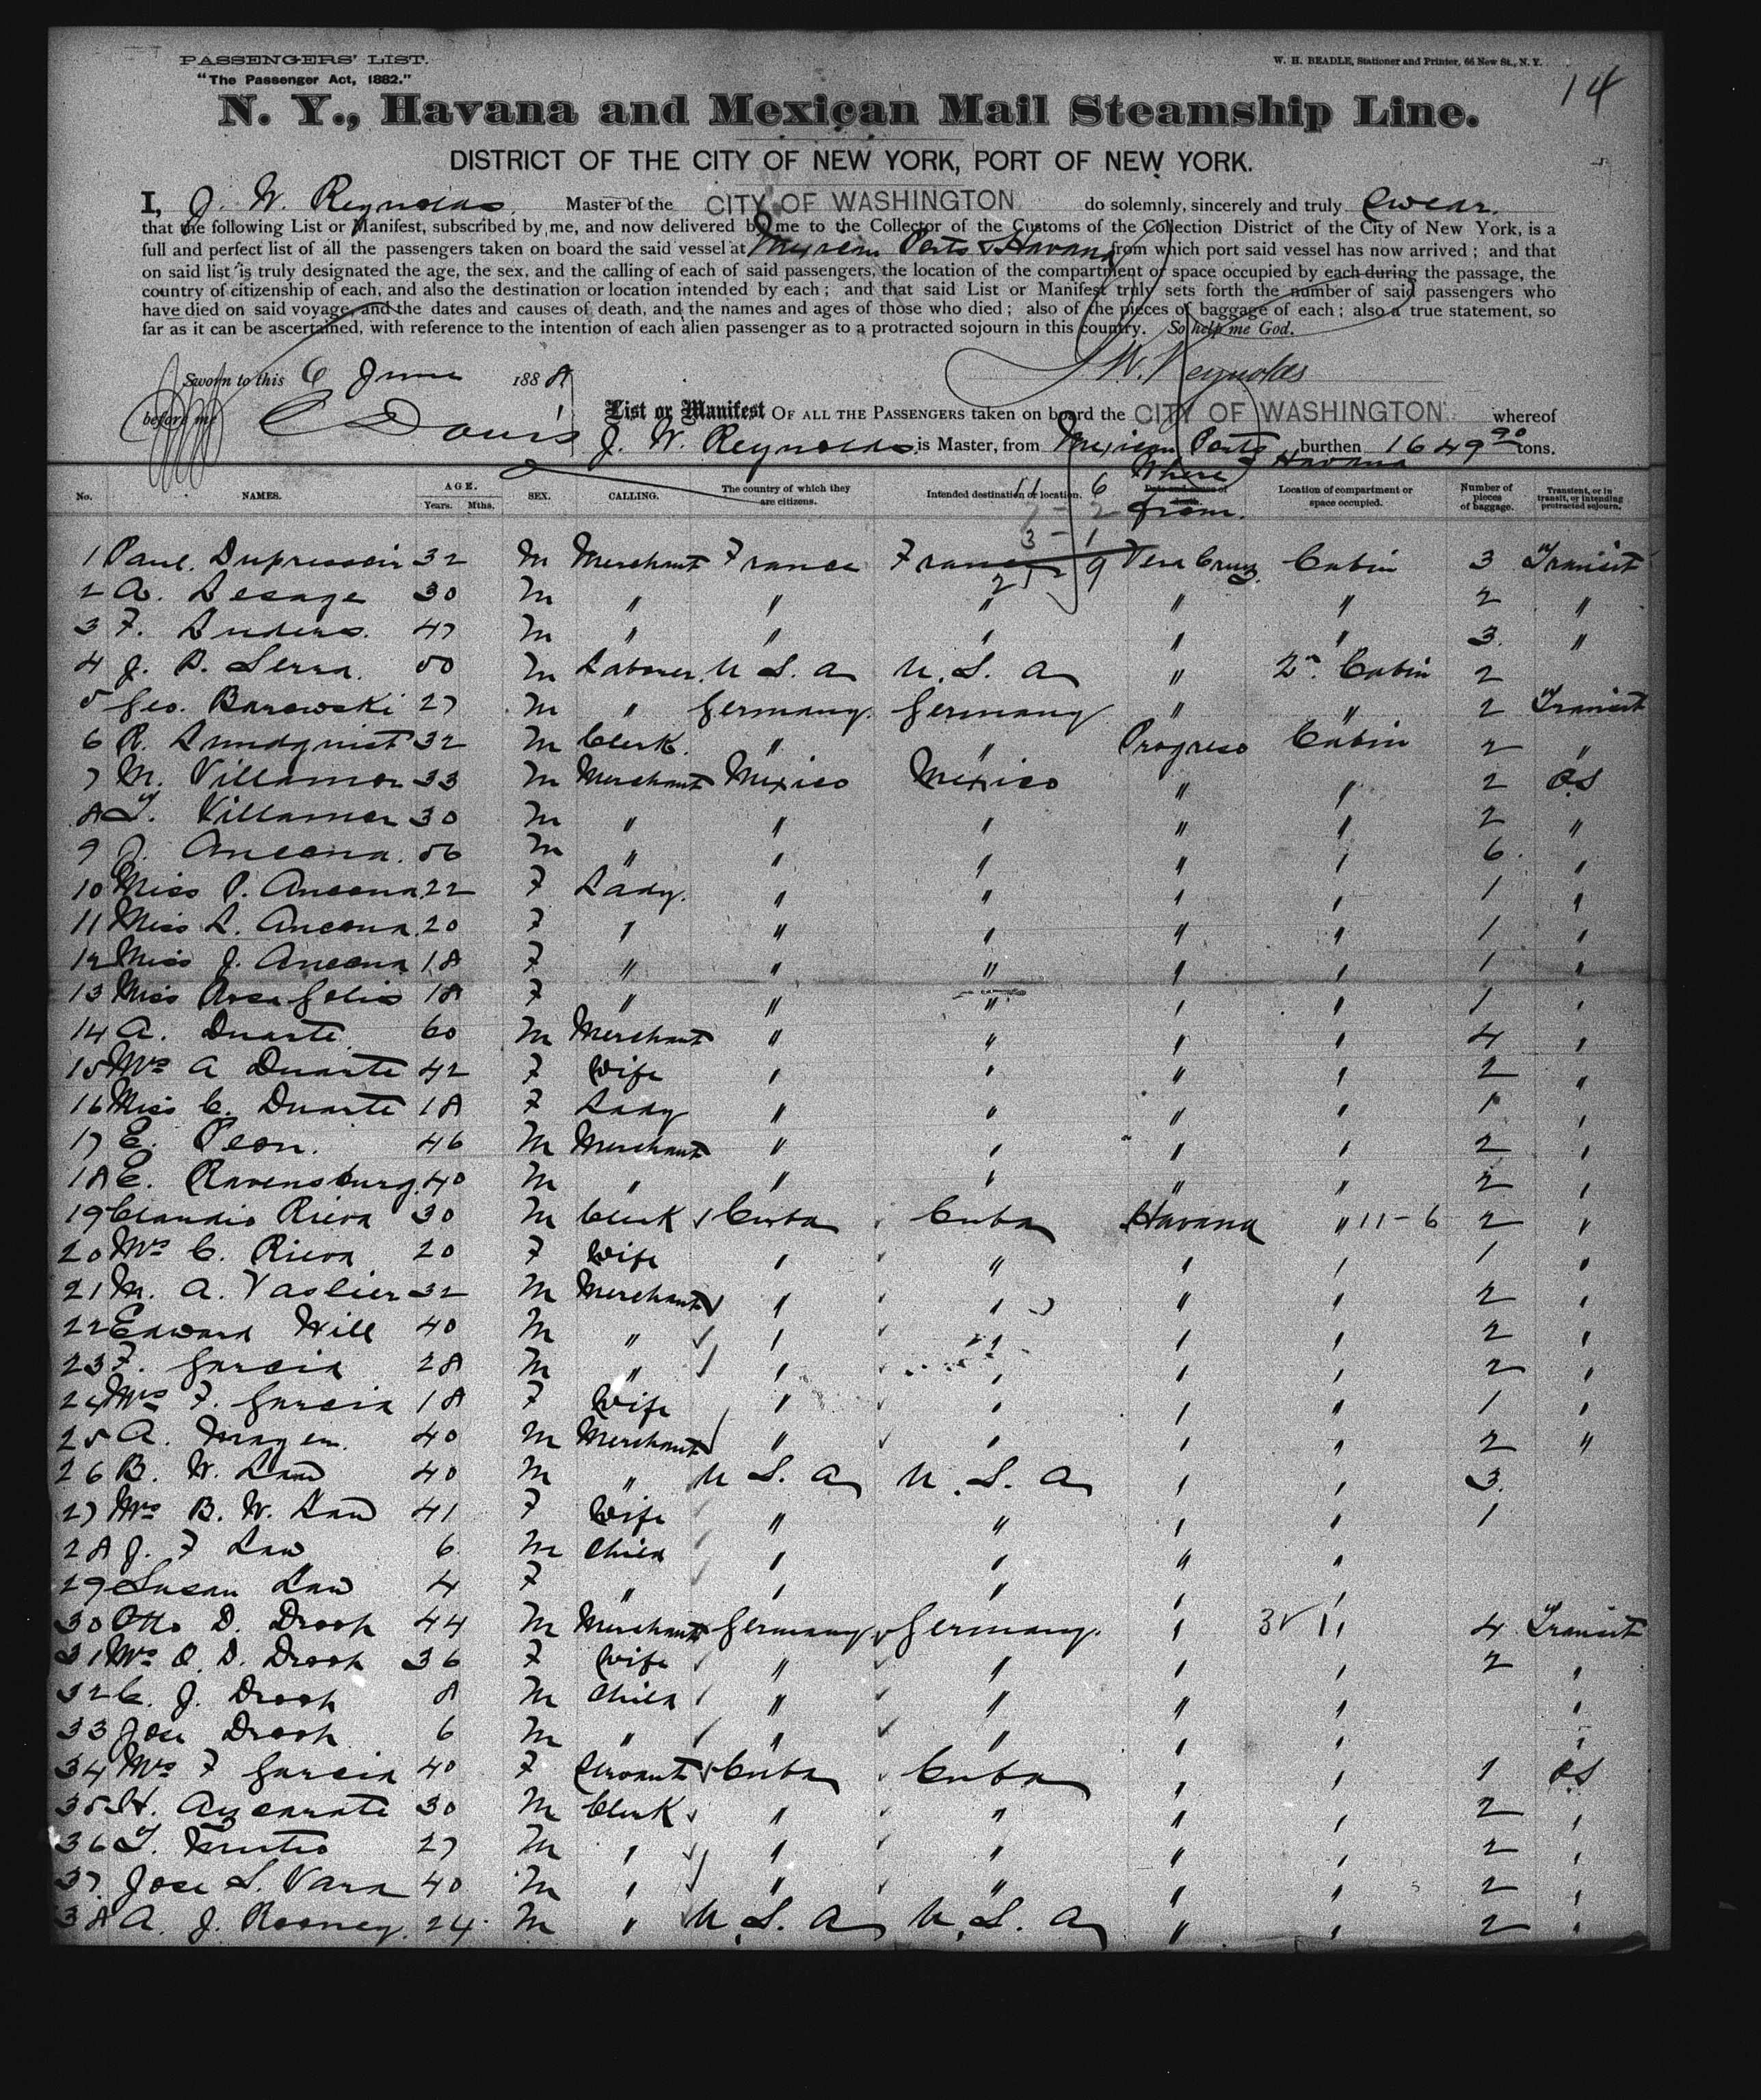 PASSENGERS' LIST.
"The Passenger Act, 1882."
W. H. BEADLE, Stationer and Printer, 66 New St., N. Y.
14
N. Y., Havana and Mexican Mail Steamship Line.
DISTRICT OF THE CITY OF NEW YORK, PORT OF NEW YORK.
I, J. W. Reynolds, Master of the CITY OF WASHINGTON do solemnly, sincerely and truly swear.
that the following List or Manifest, subscribed by me, and now delivered by me to the Collector of the Customs of the Collection District of the City of New York, is a
full and perfect list of all the passengers taken on board the said vessel at Mexican Ports & Havana from which port said vessel has now arrived; and that
on said list is truly designated the age, the sex, and the calling of each of said passengers, the location of the compartment or space occupied by each during the passage, the
country of citizenship of each, and also the destination or location intended by each; and that said List or Manifest truly sets forth the number of said passengers who
have died on said voyage, and the dates and causes of death, and the names and ages of those who died; also of the pieces of baggage of each; also a true statement, so
far as it can be ascertained, with reference to the intention of each alien passenger as to a protracted sojourn in this country. So help me God.
Sworn to this 6 June 1888
J W. Reynolds
before me
List or Manifest OF ALL THE PASSENGERS taken on board the CITY OF WASHINGTON whereof
J. W. Reynolds is Master, from Mexican Ports & Havana burthen 1649 90 tons.
No. NAMES. AGE. Years. Mths. SEX. CALLING. The country of which they are citizens. Intended destination or location. Date and cause of death. Where from. Location of compartment or space occupied. Number of pieces of baggage. Transient, or in transit, or intending protracted sojourn.
11 - 6
7 - 2
3 - 1
21 9
1 Paul 32 M Merchant France France Vera Cruz Cabin 3 Transit
2 A. Lesage 30 M " " " " " 2 "
3 F. 47 M " " " " " 3 "
4 J. B. Serra 50 M Laborer U.S.A U.S.A " 2nd Cabin 2
5 Geo. Barowski 27 M " Germany Germany " " 2 Transit
6 R. Lundquist 32 M Clerk " " Progreso Cabin 2 "
7 M. Villamor 33 M Merchant Mexico Mexico " " 2 PS
8 T. Villamor 30 M " " " " " 2 "
9 J. Ancona 56 M " " " " " 6 "
10 Miss P. Ancona 22 F Lady " " " " 1 "
11 Miss L. Ancona 20 F " " " " " 1 "
12 Miss J. Ancona 18 F " " " " " 1 "
13 Miss Rosa Solis 18 F " " " " " 1 "
14 A. Duarte 60 M Merchant " " " " 4 "
15 Mrs A Duarte 42 F Wife " " " " 2 "
16 Miss C. Duarte 18 F Lady " " " " 1 "
17 E. Peon. 46 M Merchant " " " " 2 "
18 E. Ravensburg 40 M " " " " " 2 "
19 Claudio Riera 30 M Clerk Cuba Cuba Havana " 11-6 2 "
20 Mrs C. Riera 20 F Wife " " " " 1 "
21 M. A. 32 M Merchant " " " " 2 "
22 Edward Hill 40 M " " " " " 2 "
23 F. Garcia 28 M " " " " " 2 "
24 Mrs F. Garcia 18 F Wife " " " " 1 "
25 A. 40 M Merchant " " " " 2 "
26 B. W. Law 40 M " U.S.A U.S.A " " 3
27 Mrs B. W. Law 41 F Wife " " " " 1
28 J. F Law 6 M Child " " " "
29 Susan Law 4 F " " " " "
30 Otto D. Droop 44 M Merchant Germany Germany " " 4 Transit
31 Mrs O. D. Droop 36 F Wife " " " " 2 "
32 C. J. Droop 8 M Child " " " " "
33 Jose Droop 6 M " " " " " "
34 Mrs F Garcia 40 F Servant Cuba Cuba " " 1 PS
35 H. 30 M Clerk " " " " 2 "
36 T. 27 M " " " " " 2 "
37 Jose S. Vara 40 M " " " " " 2 "
38 A. J. Rooney 24 M " U.S.A U.S.A " " 2 "